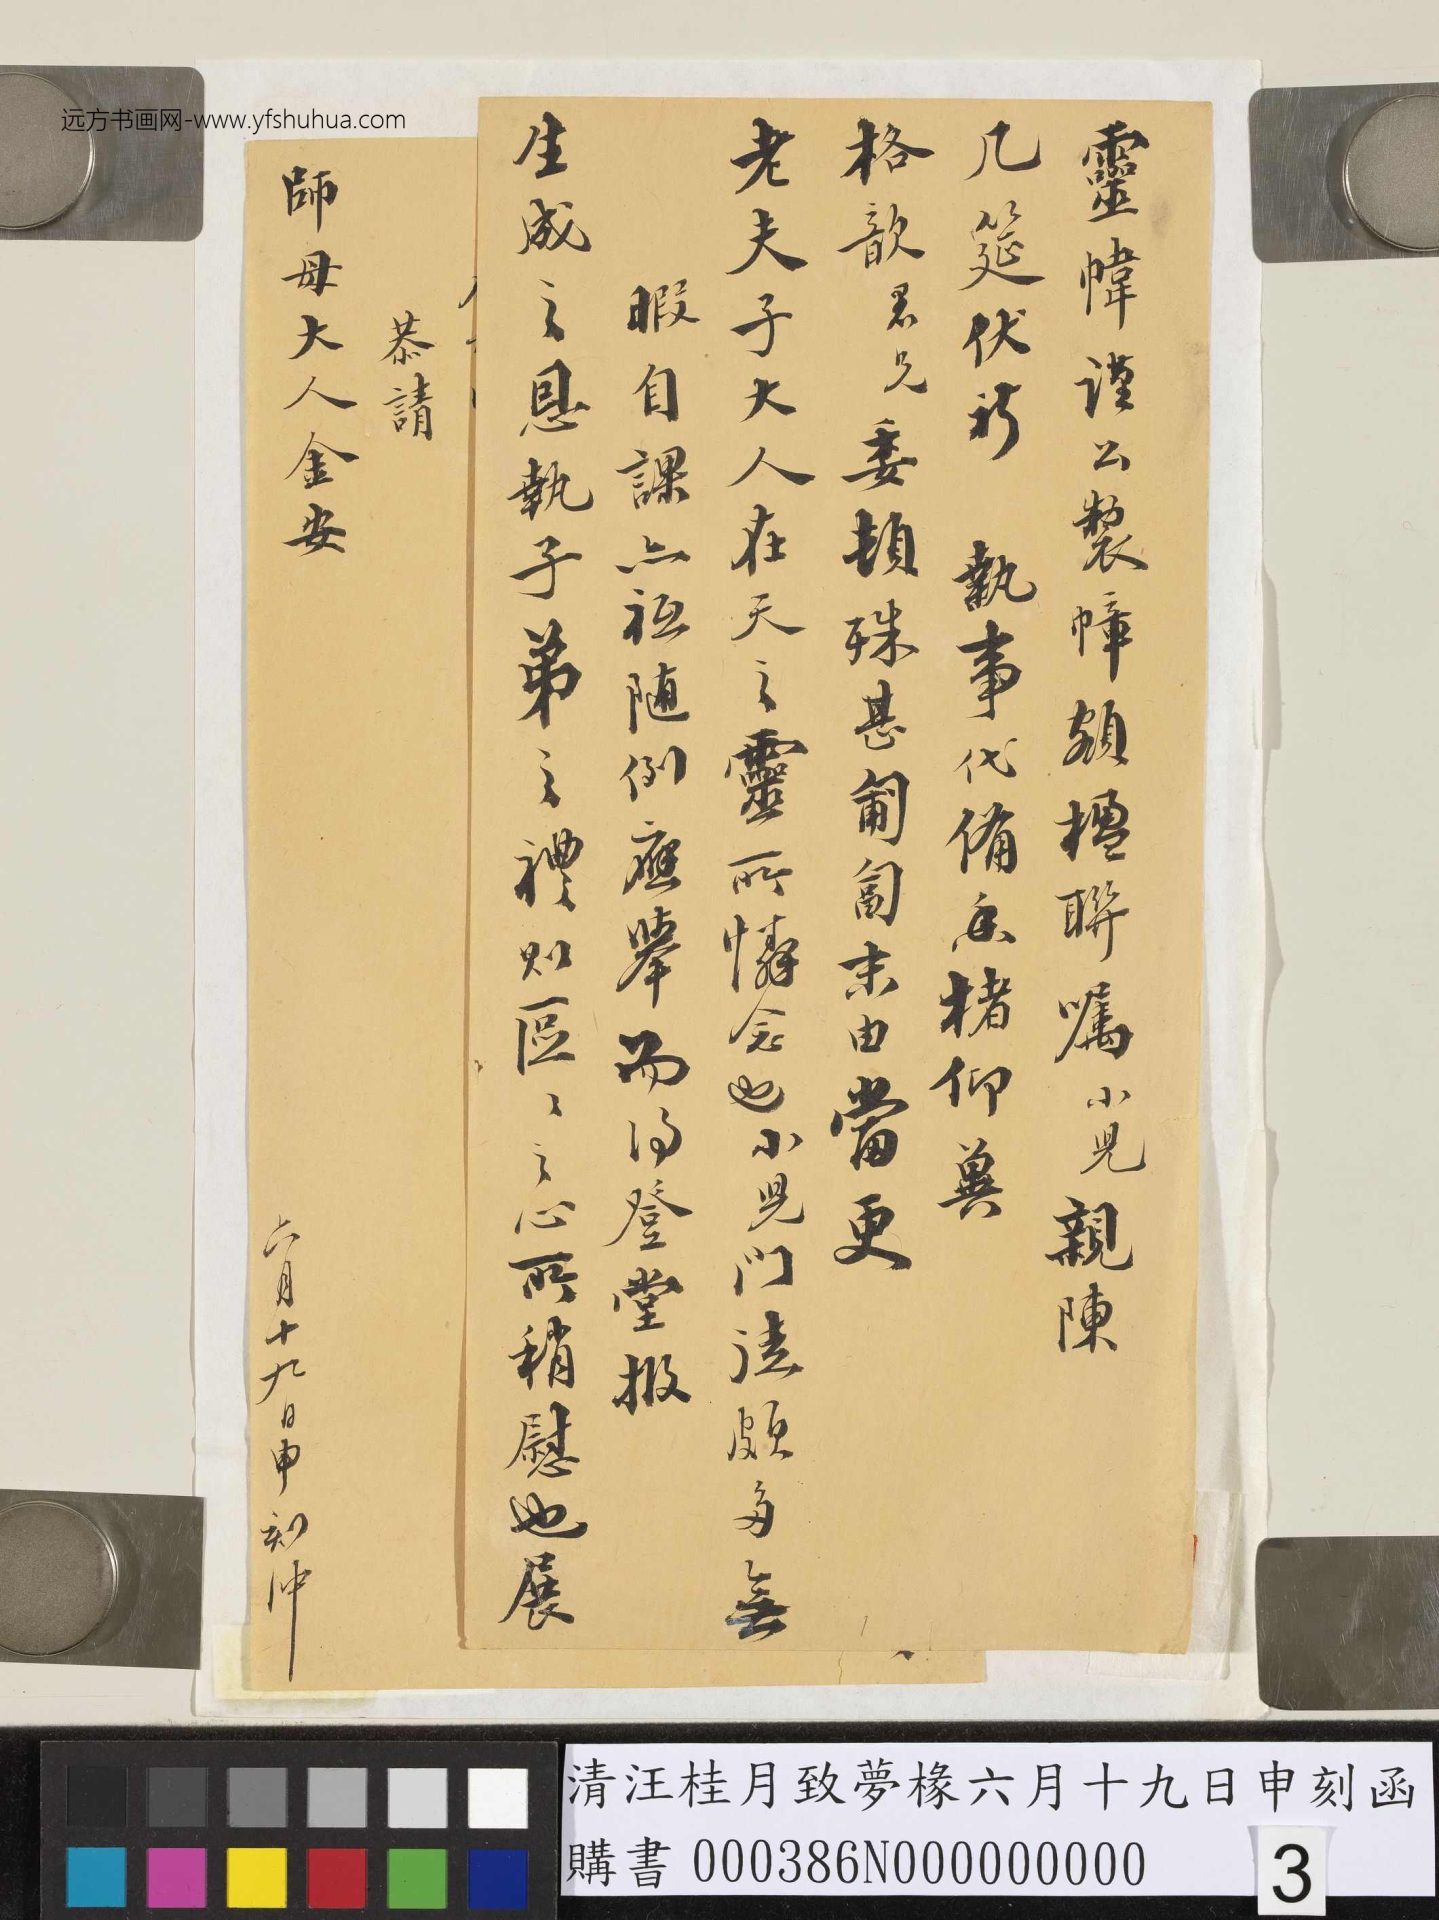 远方书画网-www.yfshuhua.com
靈幃謹公製幛額楹聯囑小兒親陳
几筵伏祈 執事代備香楮仰冀
格歆君兄委頓殊甚匍匐末由當更
老夫子大人在天之靈所憐念也小兒門法頗多無
暇自課亦祗隨例應舉而得登堂報
生成之恩執子弟之禮則區〻之心所稍慰也展
恭請
師母大人金安
六月十九日申刻沖
清汪桂月致夢椽六月十九日申刻函
購書 000386N000000000
3